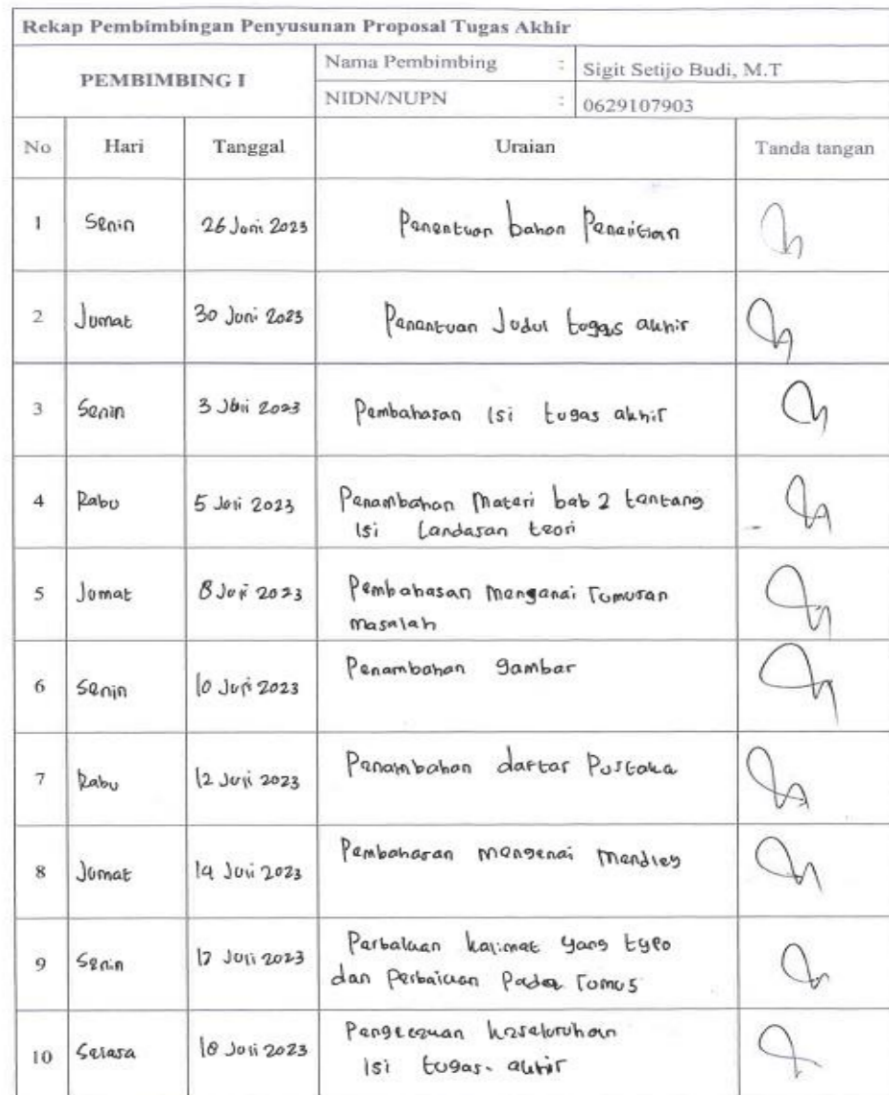 Rekap Pembimbingan Penyusunan Proposal Tugas Akhir
PEMBIMBING I
Nama Pembimbing : Sigit Setijo Budi, M.T
NIDN/NUPN : 0629107903
No Hari Tanggal Uraian Tanda tangan
1 Senin 26 Juni 2023 Penentuan bahan Penelitian
2 Jumat 30 Juni 2023 Penentuan Judul tugas akhir
3 Senin 3 Juli 2023 Pembahasan isi tugas akhir
4 Rabu 5 Juli 2023 Penambahan Materi bab 2 tentang
isi Landasan teori
5 Jumat 8 Juli 2023 Pembahasan mengenai rumusan
masalah
6 Senin 10 Juli 2023 Penambahan gambar
7 Rabu 12 Juli 2023 Penambahan daftar Pustaka
8 Jumat 14 Juli 2023 Pembahasan mengenai
9 Senin 17 Juli 2023 Perbaikan kalimat yang typo
dan Perbaikan Pada rumus
10 Selasa 18 Juli 2023 Pengecekan keseluruhan
isi tugas akhir